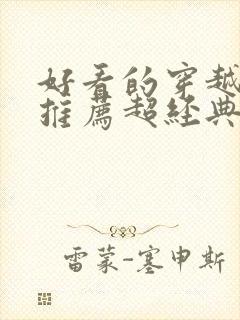 好看的穿越
推薦超經典
雷蒙-塞申斯